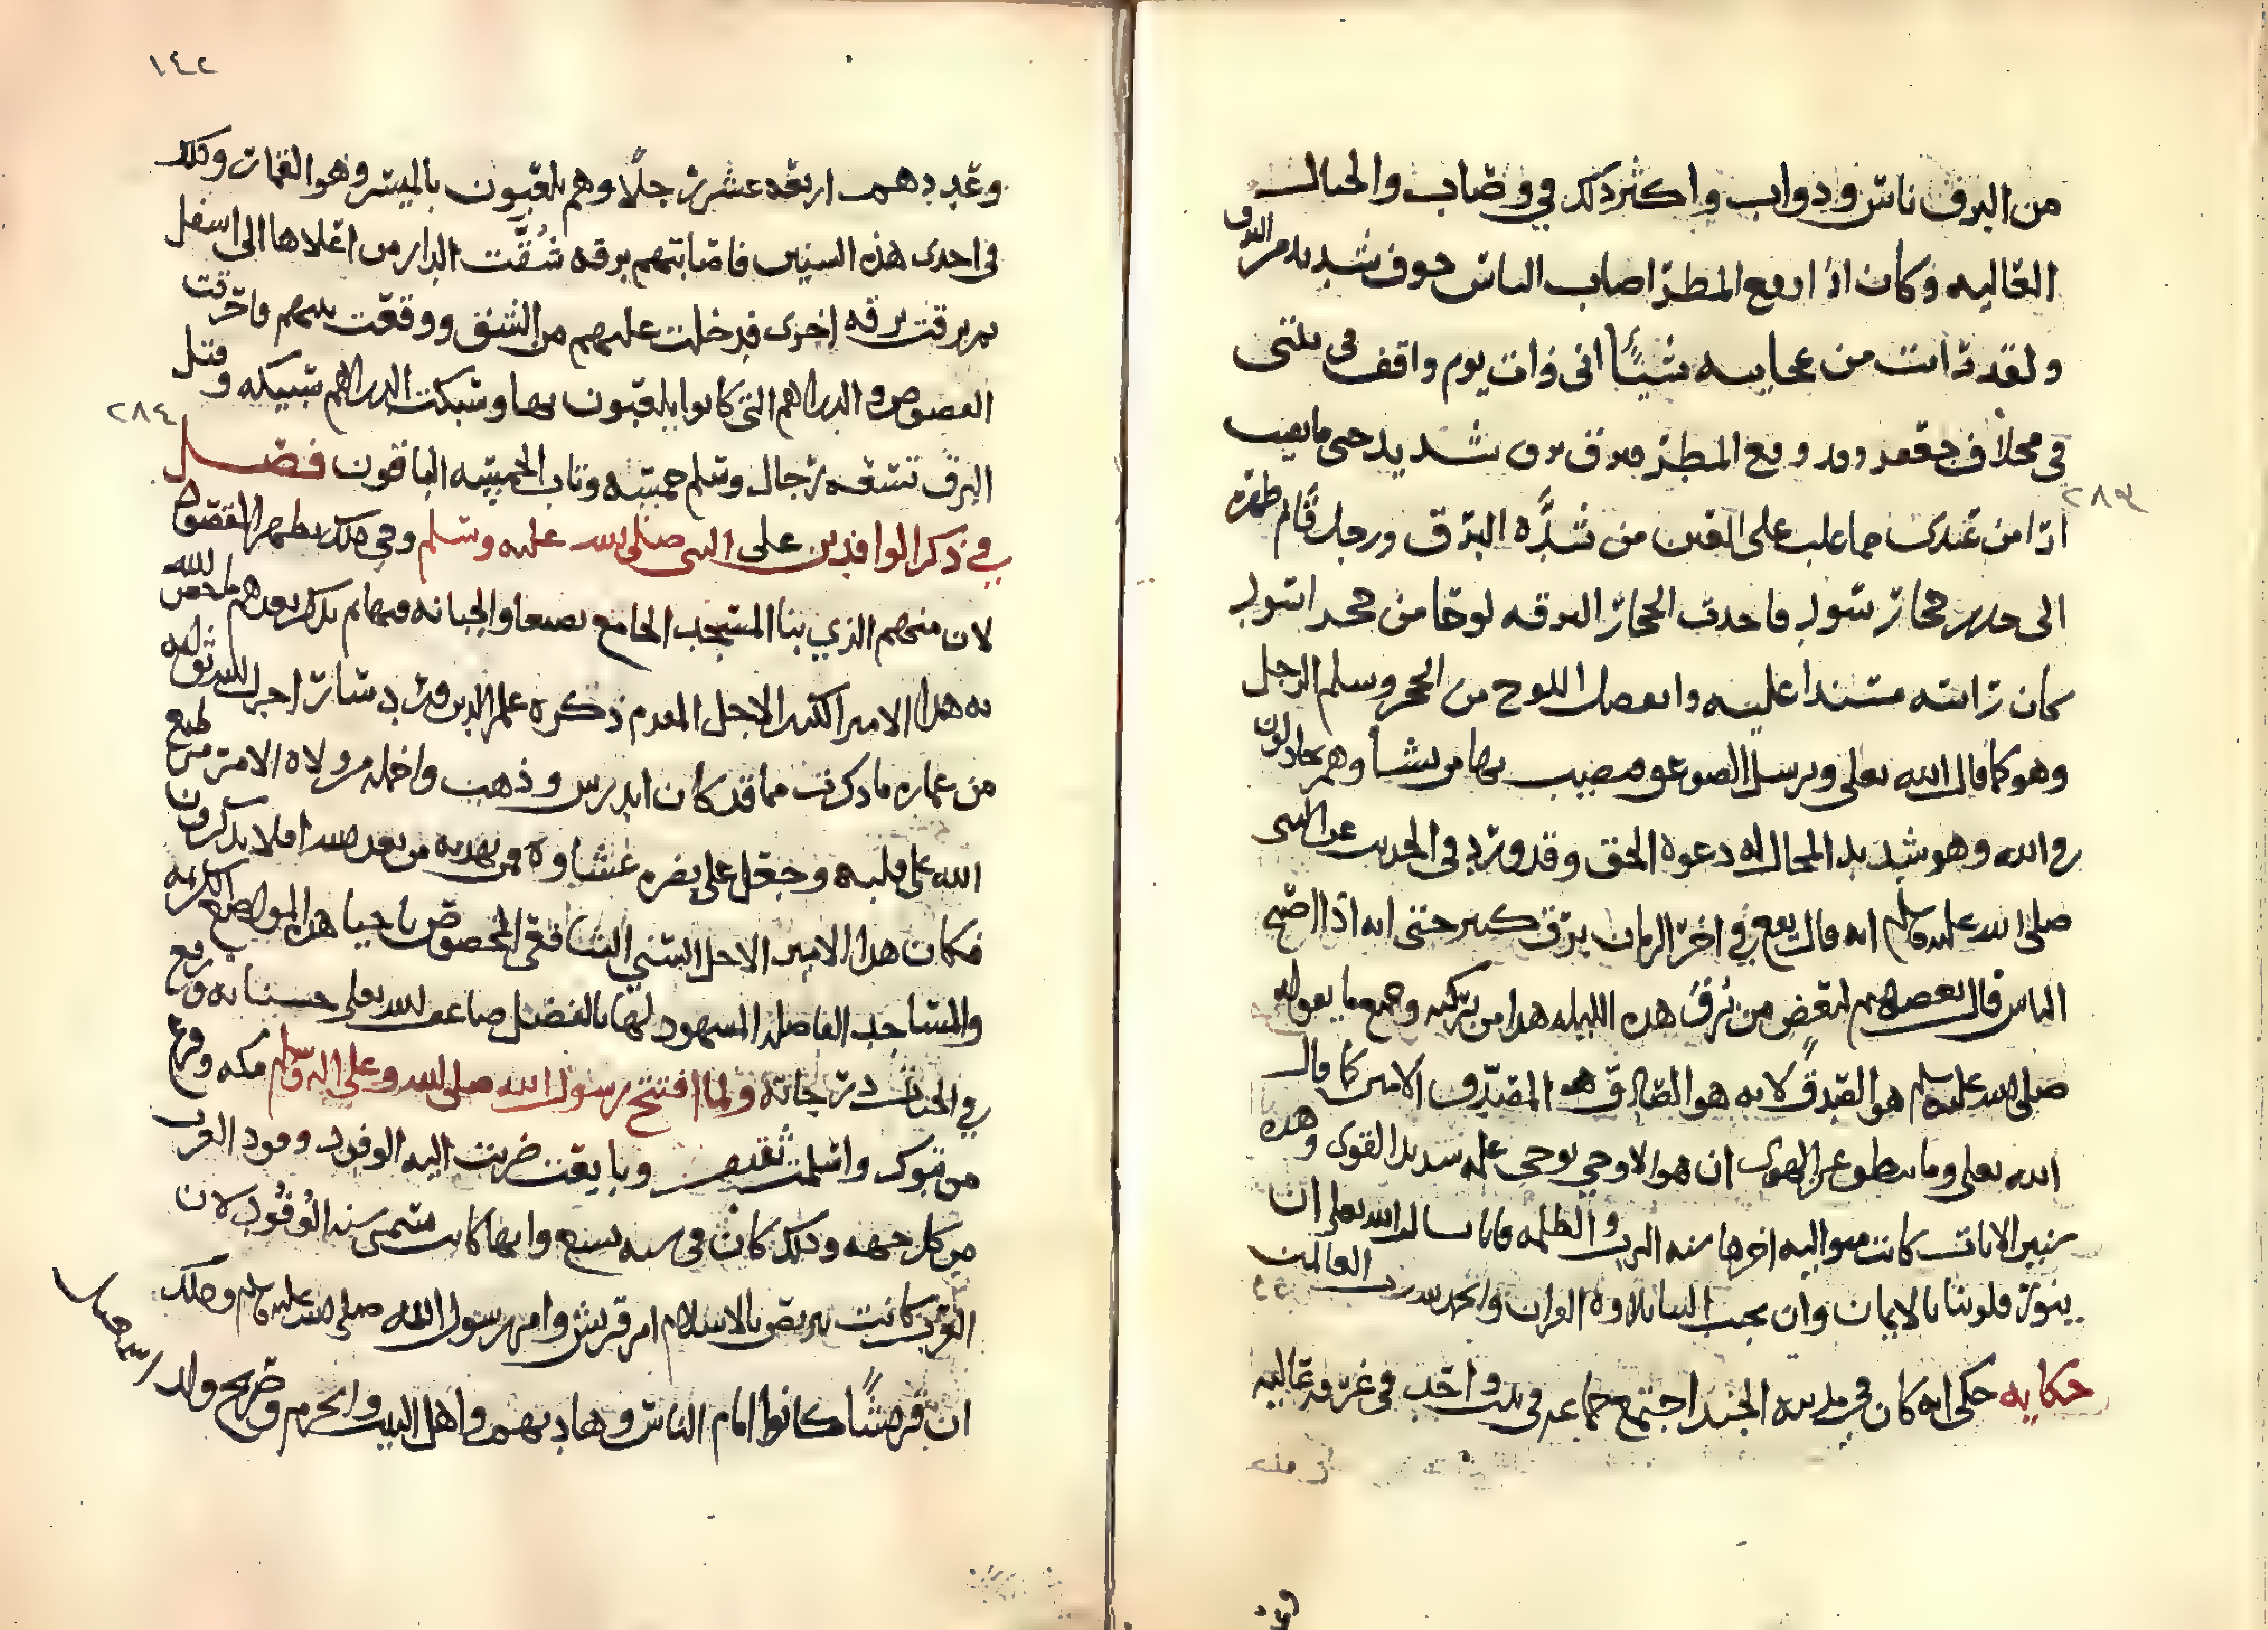 من البرق ناس ودواب واكثر ذلك في وصاب والجبال
العاليه وكان اذا وقع المطر اصاب الناس خوف شديد من البرق
ولقد رايت من عجايبه شيئًا اني ذات يوم واقف في بيتي
في مخلاف جعفر وقد وقع المطر فبرق برق شديد حتى ما يغيب
٢٨٣
اذا من عندي مما غلب على العين من شدَّه البرق ورجل قايم ظهره
الى حجار فاخذت الحجار البرقه لوحًا من حجر
كان راسه مستندا عليه وانفصل اللوح من الحجر وسلم الرجل
وهو كما قال الله تعلى ويرسل الصوعق فيصيب بها من يشا وهم يجادلون
في الله وهو شديد المحال له دعوة الحق وقد ورد في الحديث عن النبي
صلى الله عليه وسلم انه قال يقع في اخر الزمان برق كثير حتى انه اذا اصبح
الناس قال بعضهم لبعض من بُرق هذه الليله هذا من بركته وجميع ما يقوله
صلى الله عليه وسلم هو الصدق لانه هو الصادق المصدق الامين كما قال
الله تعلى وما ينطق عن الهوى ان هو الا وحي يوحى علمه شديد القوى وهذه
الايات كانت متواليه اخرها سنه البرق والظلمه فانا نسال الله تعلى ان
ينور قلوبنا بالايمان وان يحبب الينا تلاوة القران والحمد لله رب العالمين
حكايه حكى انه كان في مدينه الجند اجتمع جماعه في بيت واحد في غرفه عاليه
١٤٢
وعددهم اربعه عشر رجلًا وهم يلعبون بالميسر وهو القمار وذلك
في احدى هذه السنين فاصابتهم برقه شُقَّت الدار من اعلاها الى اسفل
ثم برقت برقه اخرى فدخلت عليهم من الشق ووقعت بينهم فاحرقت
الفصوص والدراهم التي كانوا يلعبون بها وشبكت الدراهم شبيكه وقتل
٢٨٤
البرق تسعه رجال وسلم خمسه وتاب الخمسه الباقون فصل
في ذكر الوافدين على النبي صلى الله عليه وسلم وفي ذلك يظهر المقصود
لان منهم الذي بنا المسجد الجامع بصنعا والجبانه فيها ثم نذكر بعدهم ما خص الله
به هذا الامير الكبير الاجل المقدم ذكره علم الدين وردسار اجزل الله ثوابه
من عماره ما ذكرت مما قد كان اندرس وذهب واخمله من ولاه الامر من طبع
الله على قلبه وجعل على بصره غشاوة فمن يهديه من بعد الله افلا تذكرون
فكان هذا الامير الاجل السني الشافعي المخصوص باحيا هذه المواضع الكريمه
والمساجد الفاضله المشهود لها بالفضل ضاعف الله تعلى حسناته ورفع
في الجنات درجاته ولما افتتح رسول الله صلى الله وعلى اله وسلم مكه وفرغ
من تبوك واسلمت ثقيف وبايعت ضربت اليه الوفود وفود العرب
من كل جهه وذلك كان في سنه تسع وانها كانت تسمى سنه الوُفُود لان
العرب كانت تربص بالاسلام امر قريش وامر رسول الله صلى الله عليه وسلم وذلك
ان قريشًا كانوا امام الناس وهاديهم واهل البيت والحرم وصريح ولد اسمعيل